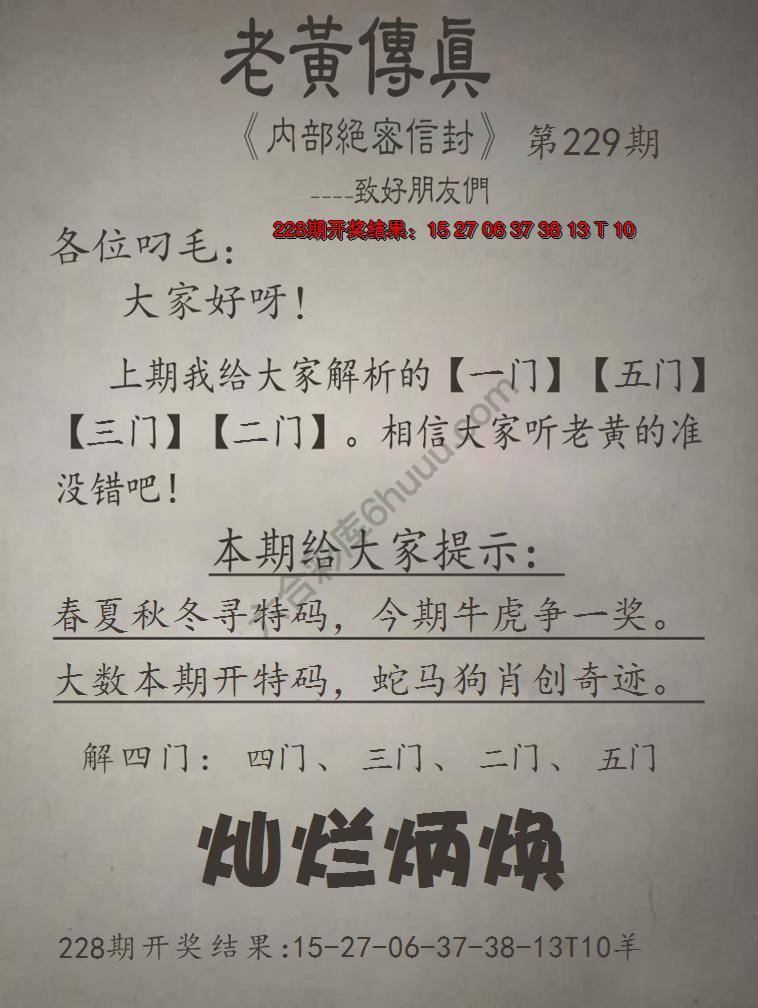 老黃傳真
《内部絕密信封》 第229期
----致好朋友們
228期开奖结果：15 27 06 37 38 13 T 10
各位叼毛：
大家好呀！
上期我给大家解析的【一门】【五门】
【三门】【二门】。相信大家听老黄的准
没错吧！
本期给大家提示：
春夏秋冬寻特码，今期牛虎争一奖。
大数本期开特码，蛇马狗肖创奇迹。
解四门： 四门、 三门、 二门、 五门
灿烂炳焕
228期开奖结果:15-27-06-37-38-13T10羊
六合彩库6huuu.com